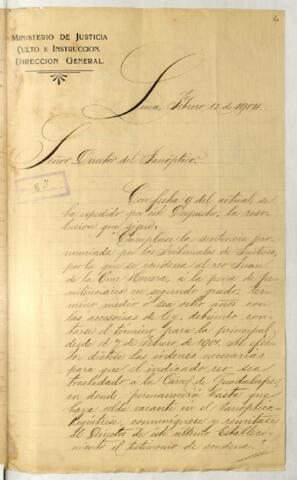 MINISTERIO DE JUSTICIA
CULTO E INSTRUCCION.
DIRECCION GENERAL.
Lima, Febrero 12 de 1904.
Señor Director del Panóptico.
Con fecha 9 del actual se
ha expedido por este Despacho, la reso-
lucion que sigue:
"Cúmplase la sentencia pro-
nunciada por los Tribunales de Justicia,
por la que se condena al reo Juan
de la Cruz a la pena de pe-
nitenciaría en segundo grado, tér-
mino medio o sea ocho años con
las accesorias de ley, debiendo con-
tarse el término para la principal
desde el 7 de Febrero, de 1901. Al efec-
to, díctese las órdenes necesarias
para que el indicado reo sea
trasladado a la Carcel de Guadalupe,
en donde permanecerá hasta que
haya celda vacante en el Panóptico.
Regístrese, comuníquese y remítase
al Director de este último Estableci-
miento el testimonio de condena."